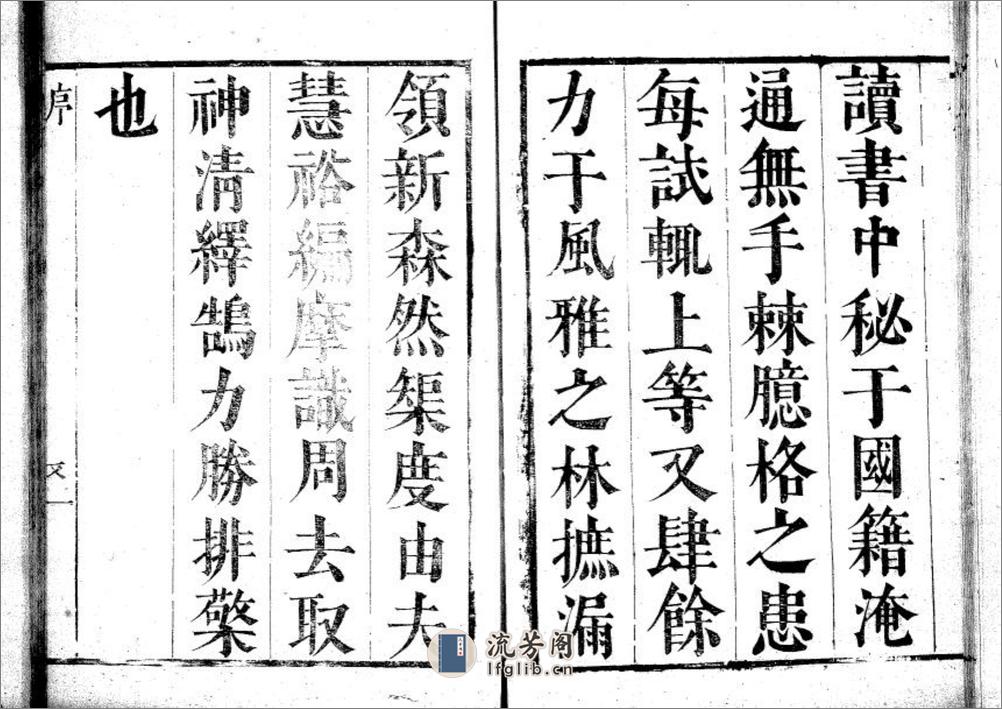 讀書中秘于國籍淹
通無手棘臆格之患
每試輒上等又肆餘
力于風雅之林摭漏
領新森然榘度由夫
慧裕編摩識周去取
神清繹鵠力勝排檠
也
序
又一
流芳阁
lfglib.cn